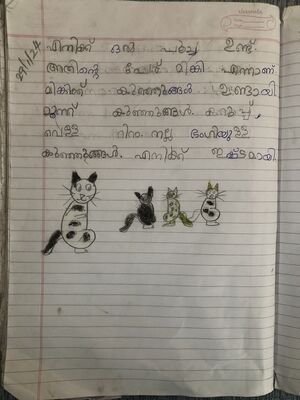 classmate
29/1/24
എനിക്ക് ഒരു പൂച്ച ഉണ്ട്.
അതിന്റെ പേര് മിങ്കി എന്നാണ്
മിങ്കിക്ക് കുഞ്ഞുങ്ങൾ ഉണ്ടായി
മൂന്ന് കുഞ്ഞുങ്ങൾ. കറുപ്പ്,
വെള്ള നിറം നല്ല ഭംഗിയുള്ള
കുഞ്ഞുങ്ങൾ. എനിക്ക് ഇഷ്ടമായി.